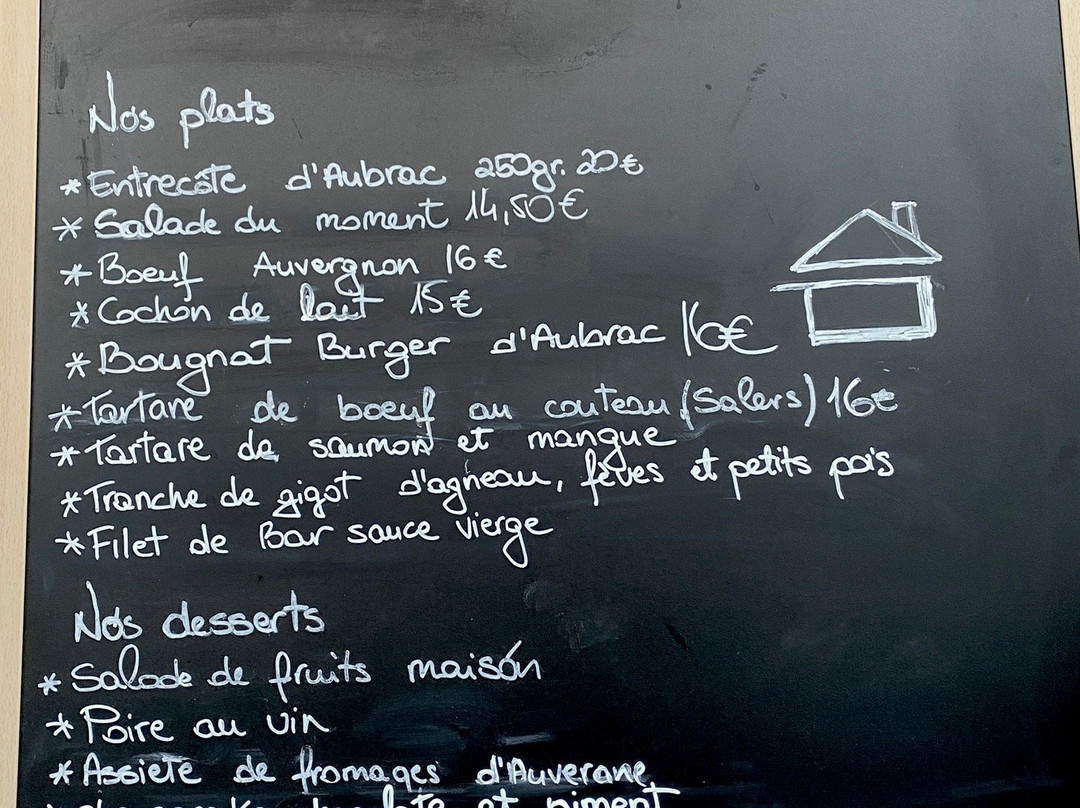 Nos plats
* Entrecôte d'Aubrac 250gr. 20€
* Salade du moment 14,50€
* Boeuf Auvergnon 16€
* Cochon de lait 15€
* Bougnat Burger d'Aubrac 16€
* Tartare de boeuf au couteau (Salers) 16€
* Tartare de saumon et mangue
* Tranche de gigot d'agneau, fèves et petits pois
* Filet de Bar sauce vierge
Nos desserts
* Salade de fruits maison
* Poire au vin
* Assiete de fromages d'Auvergne
et piment